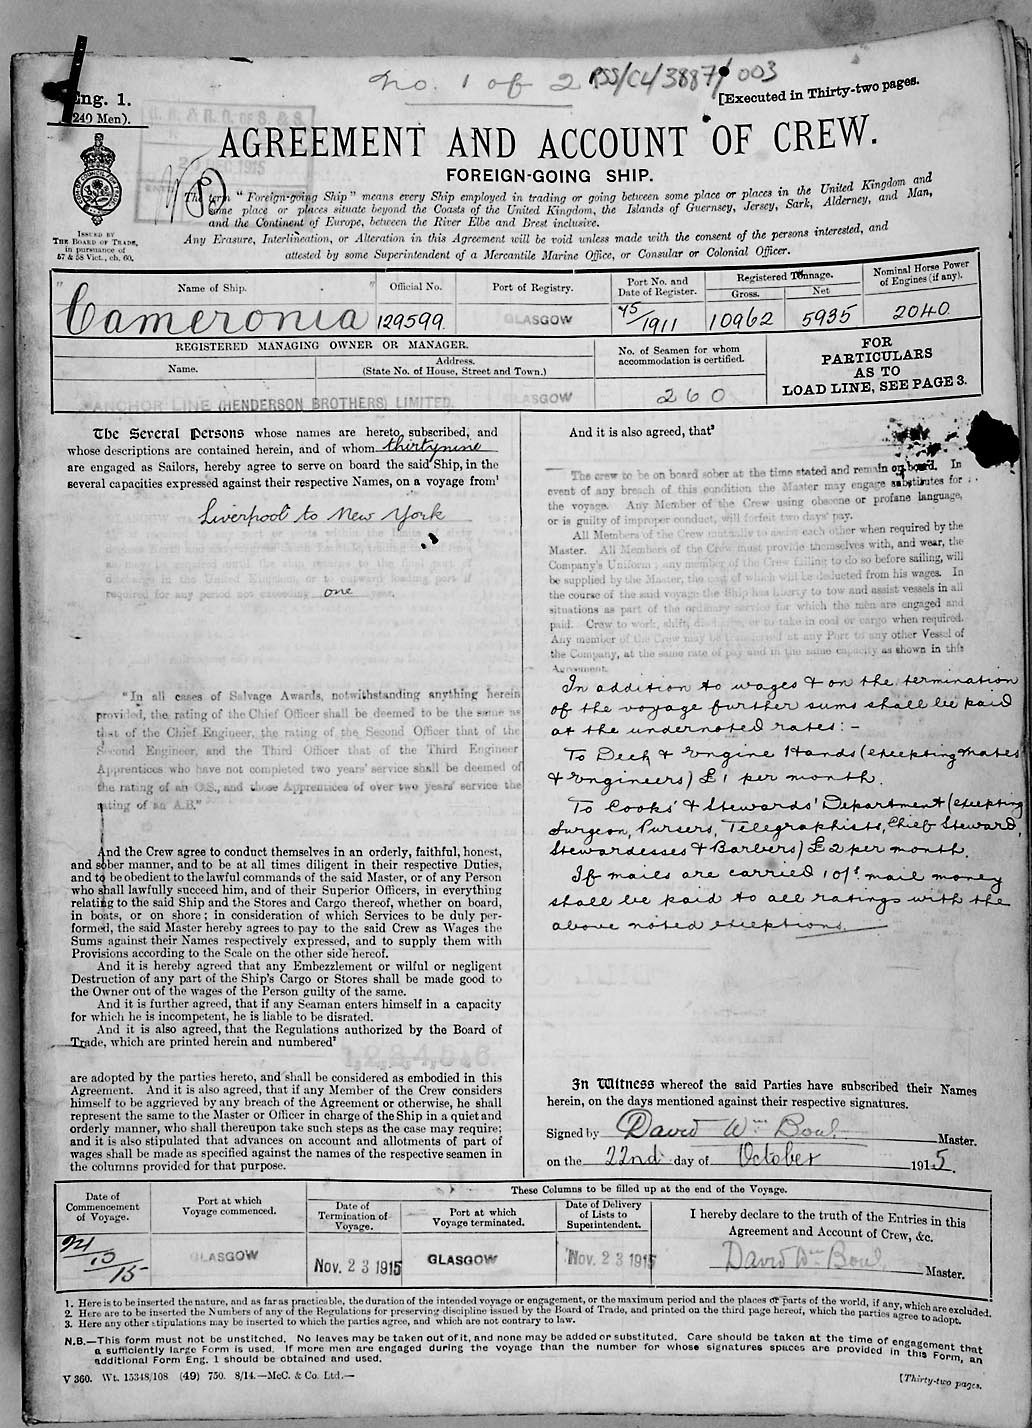 No. 1 of 2 RSS/CL/3887/003
Eng. 1.
(240 Men).
[Executed in Thirty-two pages.
AGREEMENT AND ACCOUNT OF CREW.
FOREIGN-GOING SHIP.
The term "Foreign-going Ship" means every Ship employed in trading or going between some place or places in the United Kingdom and
some place or places situate beyond the Coasts of the United Kingdom, the Islands of Guernsey, Jersey, Sark, Alderney, and Man,
and the Continent of Europe, between the River Elbe and Brest inclusive.
Any Erasure, Interlineation, or Alteration in this Agreement will be void unless made with the consent of the persons interested, and
attested by some Superintendent of a Mercantile Marine Office, or Consular or Colonial Officer.
ISSUED BY
THE BOARD OF TRADE,
in pursuance of
57 & 58 Vict., ch. 60.
Name of Ship.
Official No.
Port of Registry.
Port No. and
Date of Register.
Registered Tonnage.
Gross.
Net
Nominal Horse Power
of Engines (if any).
"Cameronia"
129599.
GLASGOW
45/1911
10962
5935
2040
REGISTERED MANAGING OWNER OR MANAGER.
Name.
Address.
(State No. of House, Street and Town.)
No. of Seamen for whom
accommodation is certified.
FOR
PARTICULARS
AS TO
LOAD LINE, SEE PAGE 3.
ANCHOR LINE (HENDERSON BROTHERS) LIMITED.
GLASGOW
260
The Several Persons whose names are hereto subscribed, and
whose descriptions are contained herein, and of whom thirtynine
are engaged as Sailors, hereby agree to serve on board the said Ship, in the
several capacities expressed against their respective Names, on a voyage from¹
Liverpool to New York
required for any period not exceeding one year.
"In all cases of Salvage Awards, notwithstanding anything herein
provided, the rating of the Chief Officer shall be deemed to be the same as
that of the Chief Engineer, the rating of the Second Officer that of the
Second Engineer, and the Third Officer that of the Third Engineer
Apprentices who have not completed two years' service shall be deemed of
the rating of an O.S., and those Apprentices of over two years' service the
rating of an A.B."
And the Crew agree to conduct themselves in an orderly, faithful, honest,
and sober manner, and to be at all times diligent in their respective Duties,
and to be obedient to the lawful commands of the said Master, or of any Person
who shall lawfully succeed him, and of their Superior Officers, in everything
relating to the said Ship and the Stores and Cargo thereof, whether on board,
in boats, or on shore; in consideration of which Services to be duly per-
formed, the said Master hereby agrees to pay to the said Crew as Wages the
Sums against their Names respectively expressed, and to supply them with
Provisions according to the Scale on the other side hereof.
And it is hereby agreed that any Embezzlement or wilful or negligent
Destruction of any part of the Ship's Cargo or Stores shall be made good to
the Owner out of the wages of the Person guilty of the same.
And it is further agreed, that if any Seaman enters himself in a capacity
for which he is incompetent, he is liable to be disrated.
And it is also agreed, that the Regulations authorized by the Board of
Trade, which are printed herein and numbered²
1,2,3,4,5,6.
are adopted by the parties hereto, and shall be considered as embodied in this
Agreement. And it is also agreed, that if any Member of the Crew considers
himself to be aggrieved by any breach of the Agreement or otherwise, he shall
represent the same to the Master or Officer in charge of the Ship in a quiet and
orderly manner, who shall thereupon take such steps as the case may require;
and it is also stipulated that advances on account and allotments of part of
wages shall be made as specified against the names of the respective seamen in
the columns provided for that purpose.
And it is also agreed, that³
The crew to be on board sober at the time stated and remain on board. In
event of any breach of this condition the Master may engage substitutes for
the voyage. Any Member of the Crew using obscene or profane language,
or is guilty of improper conduct, will forfeit two days' pay.
All Members of the Crew mutually to assist each other when required by the
Master. All Members of the Crew must provide themselves with, and wear, the
Company's Uniform; any member of the Crew failing to do so before sailing, will
be supplied by the Master, the cost of which will be deducted from his wages. In
the course of the said voyage the Ship has liberty to tow and assist vessels in all
situations as part of the ordinary service for which the men are engaged and
paid. Crew to work, shift, discharge, or to take in coal or cargo when required.
Any member of the Crew may be transferred at any Port to any other Vessel of
the Company, at the same rate of pay and in the same capacity as shown in this
Agreement.
In addition to wages & on the termination
of the voyage further sums shall be paid
at the undernoted rates:-
To Deck & Engine Hands (excepting Mates
& Engineers) £1 per month.
To Cooks' & Stewards' Department (excepting
Surgeon, Pursers, Telegraphists, Chief Steward,
Stewardesses & Barbers) £2 per month.
If mails are carried, of mail money
shall be paid to all ratings with the
above noted exceptions.
In Witness whereof the said Parties have subscribed their Names
herein, on the days mentioned against their respective signatures.
Signed by David Wm Bone Master.
on the 22nd day of October 1915.
Date of
Commencement
of Voyage.
Port at which
Voyage commenced.
These Columns to be filled up at the end of the Voyage.
Date of
Termination of
Voyage.
Port at which
Voyage terminated.
Date of Delivery
of Lists to
Superintendent.
I hereby declare to the truth of the Entries in this
Agreement and Account of Crew, &c.
21/10/15
GLASGOW
Nov. 23 1915
GLASGOW
Nov. 23 1915
David Wm Bone Master.
1. Here is to be inserted the nature, and as far as practicable, the duration of the intended voyage or engagement, or the maximum period and the places or parts of the world, if any, which are excluded.
2. Here are to be inserted the Numbers of any of the Regulations for preserving discipline issued by the Board of Trade, and printed on the third page hereof, which the parties agree to adopt.
3. Here any other stipulations may be inserted to which the parties agree, and which are not contrary to law.
N.B.—This form must not be unstitched. No leaves may be taken out of it, and none may be added or substituted. Care should be taken at the time of engagement that
a sufficiently large Form is used. If more men are engaged during the voyage than the number for whose signatures spaces are provided in this Form, an
additional Form Eng. 1 should be obtained and used.
V 360. Wt. 15348/108 (49) 750. 8/14.—McC. & Co. Ltd.—
[Thirty-two pages.